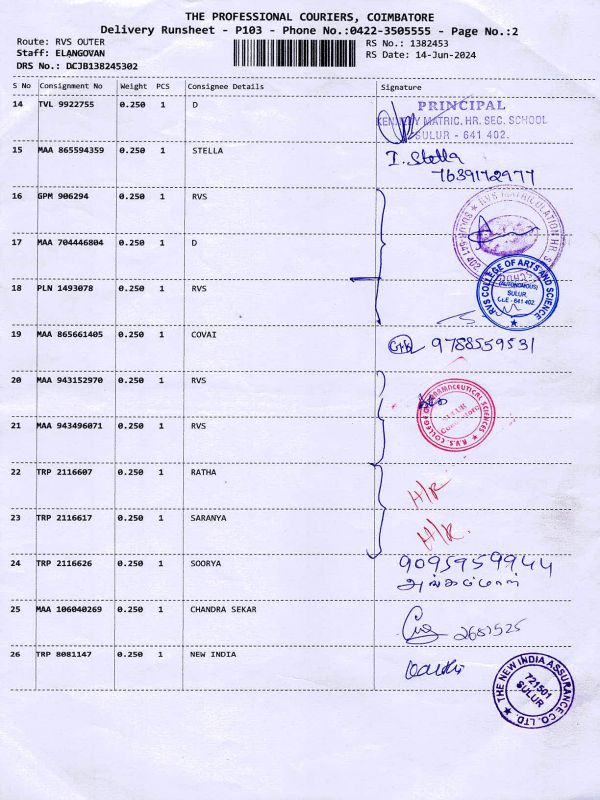 THE PROFESSIONAL COURIERS, COIMBATORE
Delivery Runsheet - P103 - Phone No.:0422-3505555 - Page No.:2
Route: RVS OUTER
Staff: ELANGOVAN
DRS No.: DCJB138245302
RS No.: 1382453
RS Date: 14-Jun-2024
S No Consignment No Weight PCS Consignee Details Signature
14 TVL 9922755 0.250 1 D
PRINCIPAL
MATRIC. HR. SEC. SCHOOL
SULUR - 641 402.
15 MAA 865594359 0.250 1 STELLA I. Stella
7639172977
16 GPM 906294 0.250 1 RVS
RVS MATRICULATION HR. S
17 MAA 704446804 0.250 1 D
18 PLN 1493078 0.250 1 RVS
RVS COLLEGE OF ARTS AND SCIENCE
(AUTONOMOUS)
SULUR,
CBE - 641 402.
19 MAA 865661405 0.250 1 COVAI 9788559531
20 MAA 943152970 0.250 1 RVS
R.V.S. COLLEGE OF PHARMACEUTICAL SCIENCES
SULUR
COIMBATORE
21 MAA 943496071 0.250 1 RVS
22 TRP 2116607 0.250 1 RATHA H/R
23 TRP 2116617 0.250 1 SARANYA H/R.
24 TRP 2116626 0.250 1 SOORYA 9095959944
25 MAA 106040269 0.250 1 CHANDRA SEKAR 2681525
26 TRP 8081147 0.250 1 NEW INDIA
THE NEW INDIA ASSURANCE CO. LTD
721501
SULUR